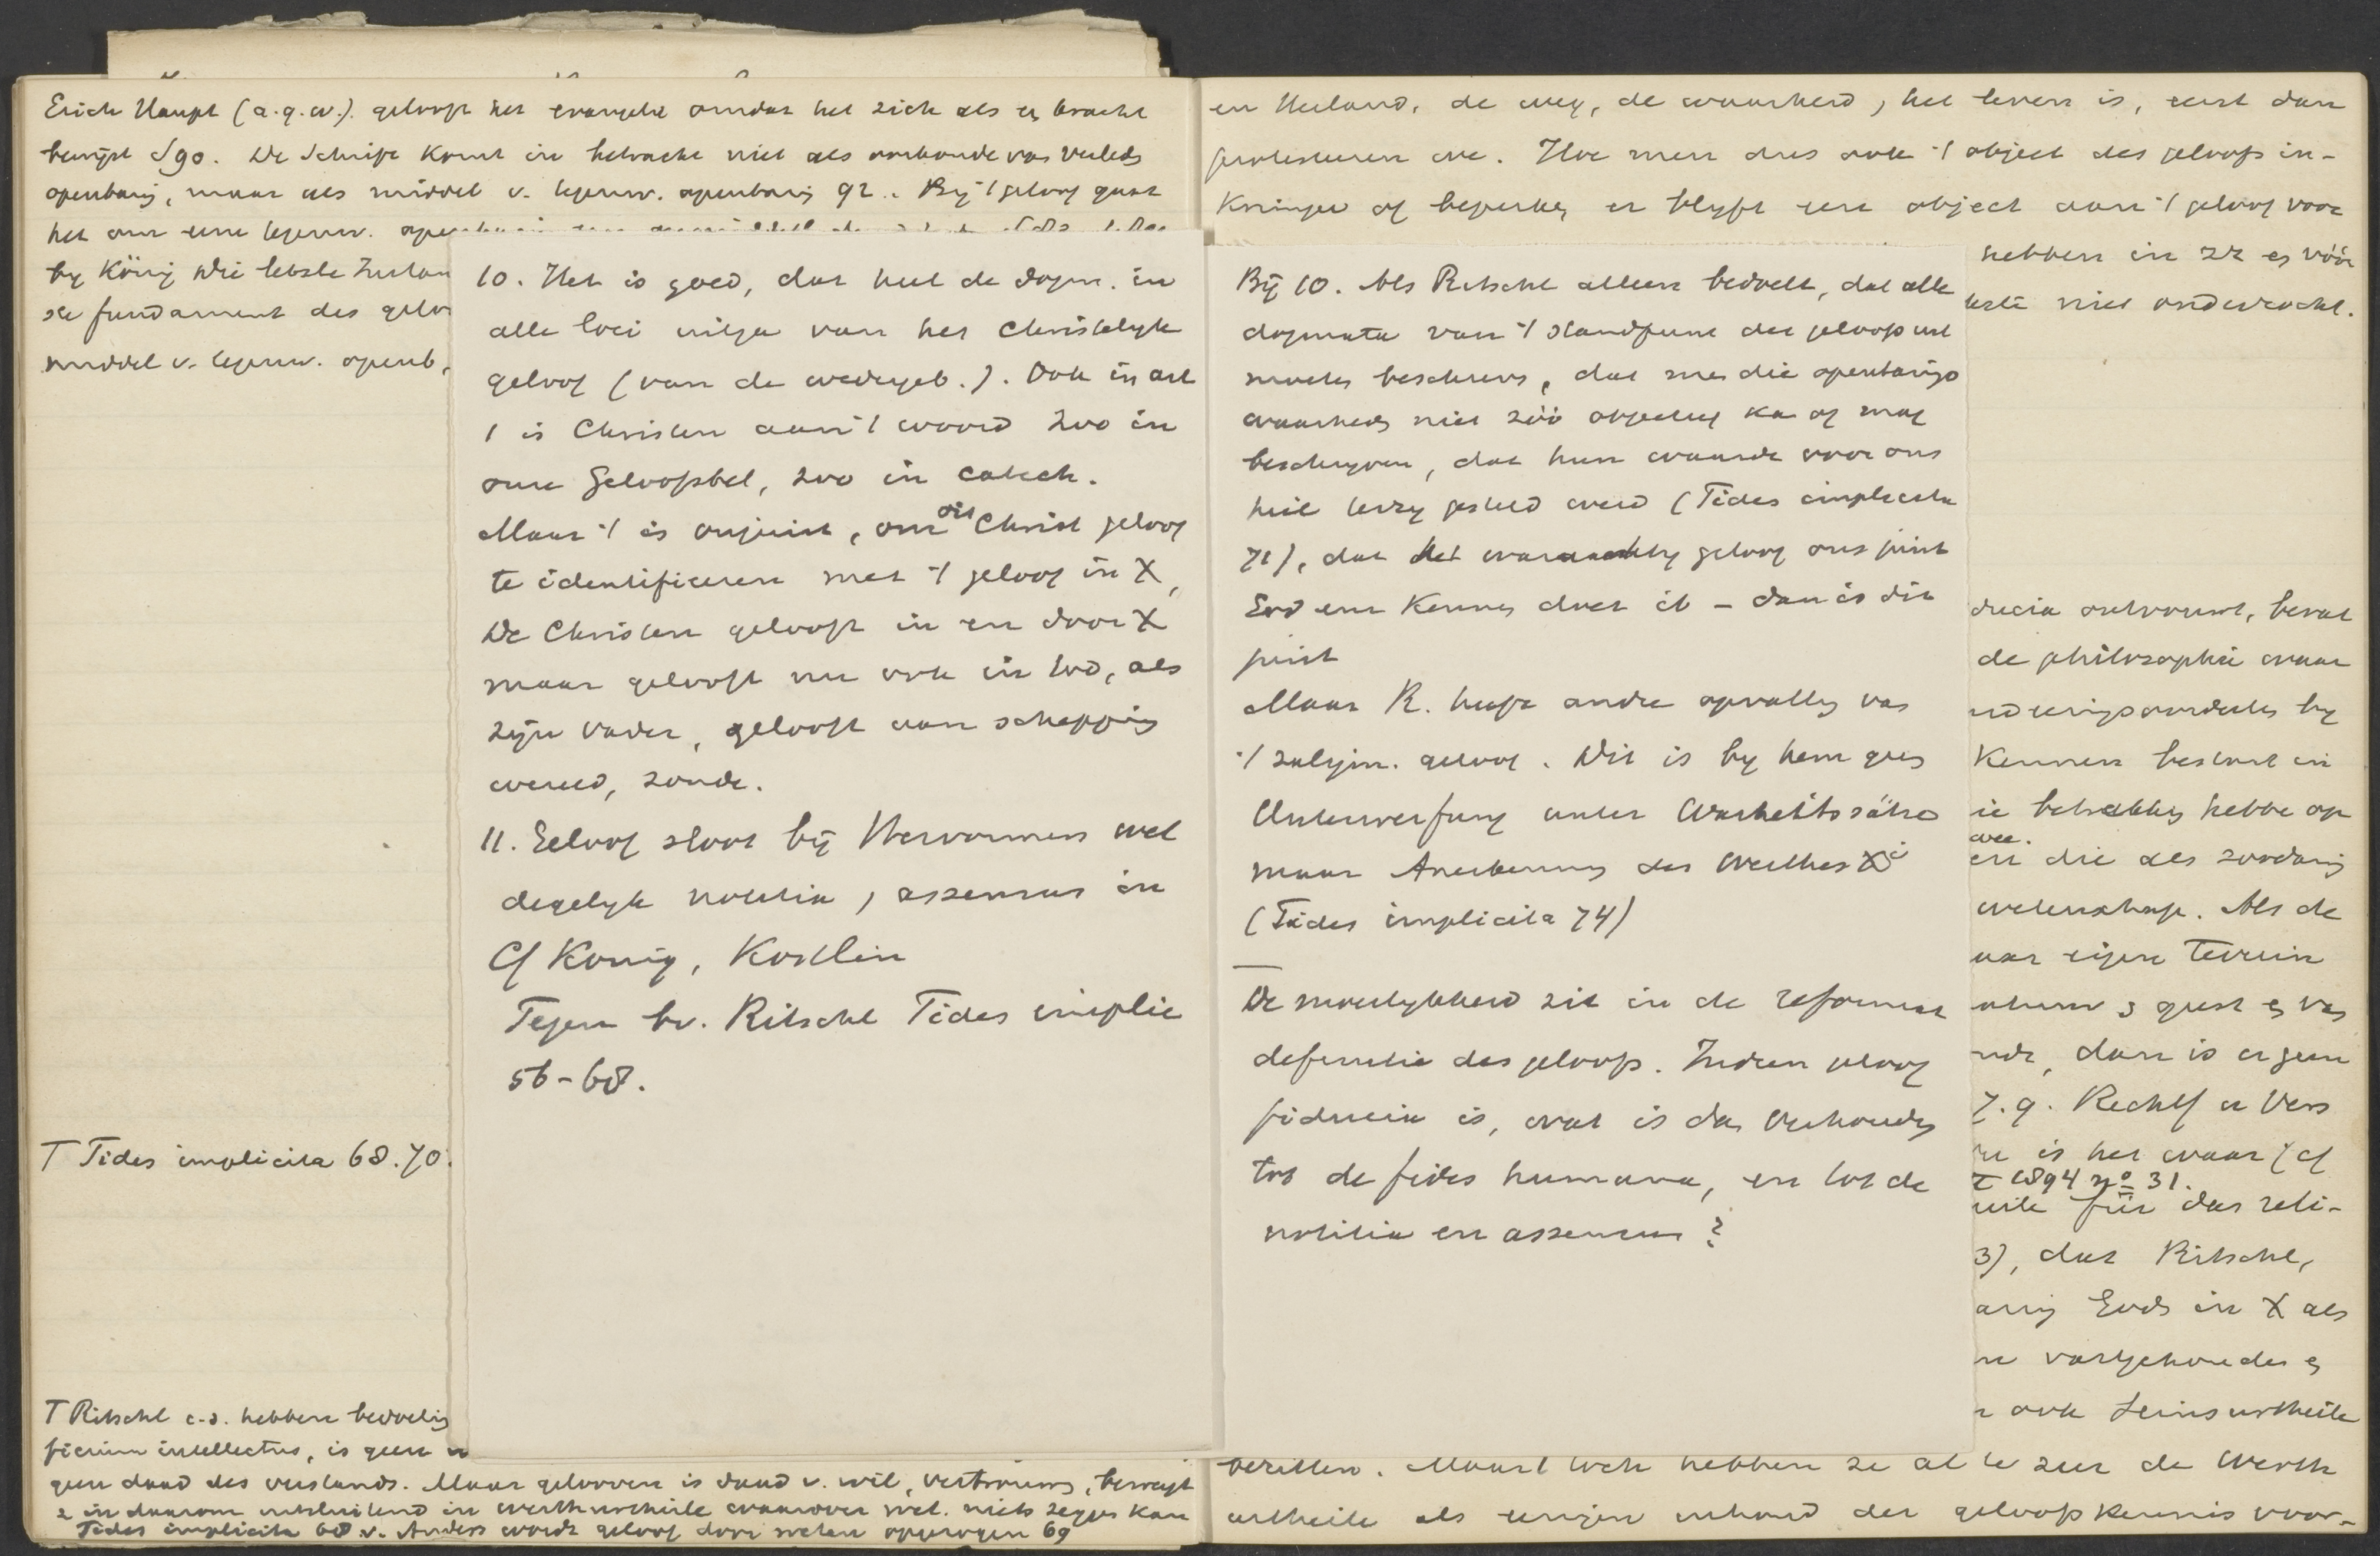 Erich Haupt (a.q.w.). gelooft het evangelie omdat het zich als en kracht
bewijst S90. De Schrift komt in betracht niet als oorkonde van verleds
openbarig, maar als middel v. tegenw. openbarig 92. Bij 't geloof gaat
het om eene tegenw.
by König die letzte
se fundament des
middel v. tegenw. openb,
T Fides implicita 68.70.
T Ritschl c.s. hebben bedoelig
ficium intellectus, is geen
geen daad des verstands. Maar gelooven is daad v. wil, vertrouwen, beweegt
z in daarom uitsluitend in werthurtheile waarover wet. niets zeggen kan
Fides implicita 68 v. Anders wordt geloof door weten opgewogen 69
10. Het is goed, dat heel de dogm. in
alle loci uitga van het Christelyk
geloof (van de wedergeb.). Ook in art
1 is Christen aan 't woord zoo in
onze Geloofsbel, zoo in catech.
Maar 't is onjuist, om dit Christ geloof
te identificeren met 't geloof in X,
De Christen gelooft in en door X
maar gelooft nu ook in God, als
zijn vader, gelooft aan schepping
wereld, zonde.
11. Geloof sloot bij Hervormers wel
degelyk notitia, assensus in
Cf König, Köstlin
Tegen bv. Ritschl Fides implic
56-68.
en Heiland, de weg, de waarheid, het leven is, eerst dan
protesteren we. Hoe men dus ook 't object des geloofs in-
krimpe of beperke, er blyft een object aan 't geloof voor
hebben in zk en vóór
niet onderzocht.
Bij 10. Als Ritschl alleen bedoelt, dat alle
dogmata van 't standpunt des geloofs uit
moeten beschreven, dat men die openbarings
waarheds niet zóó objectief kan of mag
beschryven, dat hun waarde voor ons
heil terzy gesteld werd (Fides implicita
71), dat het waarachtig geloof ons juist
God eerst kennen doet ib - dan is dit
juist
Maar R. heeft andre opvatting van
't zaligm. geloof. Dit is by hem geen
Unterwerfung unter Wahrheitssätze
maar Anerkennung des Werthes Xi
(Fides implicita 74)
De moeilykheid zit in de reformat
definitie des geloofs. Indien geloof
fiducia is, wat is dan verhouding
tot de fides humana, en tot de
notitia en assensus?
ducia ontvoumt, bevat
de philosophie waar
Kennen bestaat in
ie betrekking hebbe op
wee.
en die als zoodanig
wetenschap. Als de
aar eigen terrein
dan is er geen
7.9. Rechtf u Vers
is het waar (cf
T 1894 no 31.
für das reli-
3), dat Ritschl,
Gods in X als
vastgehouden en
ook Seinsurtheile
bezitten. Maar toch hebben ze al te zeer de Werth
urtheile als eenigen inhoud der geloofskennis voor-